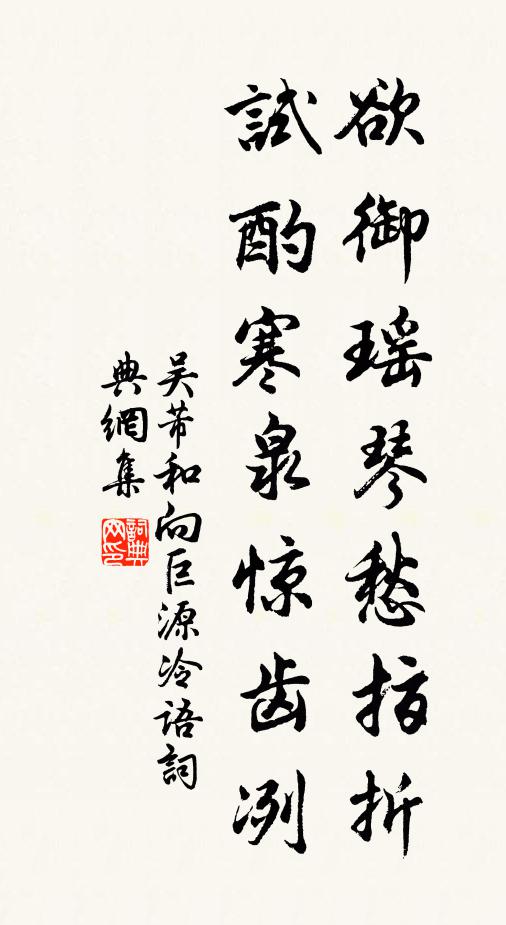 欲御瑶琴愁指折
試酌寒泉惊齿冽
吴芾和向巨源冷语詞
典網集
詞典网印